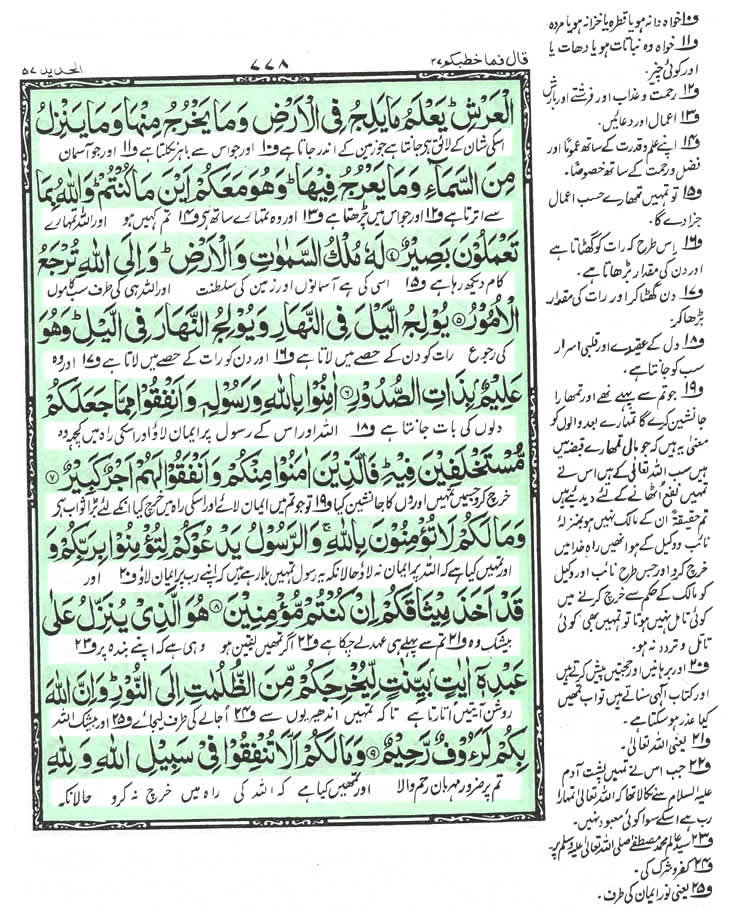 قال فما خطبکم ٢٧
٧٧٨
الحدید ٥٧
الْعَرْشِ ؕ یَعْلَمُ مَا یَلِجُ فِی الْاَرْضِ وَمَا یَخْرُجُ مِنْهَا وَمَا یَنْزِلُ
اسکی شان کے لائق ہے جانتا ہے جو زمین کے اندر جاتا ہے ف١٠ اور جو اس سے باہر نکلتا ہے ف١١ اور جو آسمان
مِنَ السَّمَآءِ وَمَا یَعْرُجُ فِیْهَا ؕ وَهُوَ مَعَكُمْ اَیْنَ مَا كُنْتُمْ ؕ وَاللّٰهُ بِمَا
سے اترتا ہے ف١٢ اور جو اس میں چڑھتا ہے ف١٣ اور وہ تمہارے ساتھ ہے ف١٤ تم کہیں ہو اور اللہ تمہارے
تَعْمَلُوْنَ بَصِیْرٌ ۝٤ لَهٗ مُلْكُ السَّمٰوٰتِ وَالْاَرْضِ ؕ وَاِلَی اللّٰهِ تُرْجَعُ
کام دیکھ رہا ہے ف١٥ اسی کی ہے آسمانوں اور زمین کی سلطنت اور اللہ ہی کی طرف سب کاموں
الْاُمُوْرُ ۝٥ یُوْلِجُ الَّیْلَ فِی النَّهَارِ وَیُوْلِجُ النَّهَارَ فِی الَّیْلِ ؕ وَهُوَ
کی رجوع رات کو دن کے حصے میں لاتا ہے ف١٦ اور دن کو رات کے حصے میں لاتا ہے ف١٧ اور وہ
عَلِیْمٌۢ بِذَاتِ الصُّدُوْرِ ۝٦ اٰمِنُوْا بِاللّٰهِ وَرَسُوْلِهٖ وَاَنْفِقُوْا مِمَّا جَعَلَكُمْ
دلوں کی بات جانتا ہے ف١٨ اللہ اور اس کے رسول پر ایمان لاؤ اور اسکی راہ میں کچھ وہ
مُّسْتَخْلَفِیْنَ فِیْهِ ؕ فَالَّذِیْنَ اٰمَنُوْا مِنْكُمْ وَاَنْفَقُوْا لَهُمْ اَجْرٌ كَبِیْرٌ ۝٧
خرچ کرو جسمیں تمہیں اوروں کا جانشین کیا ف١٩ تو جو تم میں ایمان لائے اور اسکی راہ میں خرچ کیا انکے لئے بڑا ثواب ہے
وَمَا لَكُمْ لَا تُؤْمِنُوْنَ بِاللّٰهِ ۚ وَالرَّسُوْلُ یَدْعُوْكُمْ لِتُؤْمِنُوْا بِرَبِّكُمْ وَ
اور تمہیں کیا ہے کہ اللہ پر ایمان نہ لاؤ حالانکہ یہ رسول تمہیں بلا رہے ہیں کہ اپنے رب پر ایمان لاؤ ف٢٠ اور
قَدْ اَخَذَ مِیْثَاقَكُمْ اِنْ كُنْتُمْ مُّؤْمِنِیْنَ ۝٨ هُوَ الَّذِیْ یُنَزِّلُ عَلٰی
بیشک وہ ف٢١ تم سے پہلے ہی عہد لے چکا ہے ف٢٢ اگر تمہیں یقین ہو وہی ہے کہ اپنے بندہ پر ف٢٣
عَبْدِهٖۤ اٰیٰتٍۭ بَیِّنٰتٍ لِّیُخْرِجَكُمْ مِّنَ الظُّلُمٰتِ اِلَی النُّوْرِ ؕ وَاِنَّ اللّٰهَ
روشن آیتیں اتارتا ہے تاکہ تمہیں اندھیریوں سے ف٢٤ اجالے کی طرف لیجائے ف٢٥ اور بیشک اللہ
بِكُمْ لَرَءُوْفٌ رَّحِیْمٌ ۝٩ وَمَا لَكُمْ اَلَّا تُنْفِقُوْا فِیْ سَبِیْلِ اللّٰهِ وَلِلّٰهِ
تم پر ضرور مہربان رحم والا اور تمہیں کیا ہے کہ اللہ کی راہ میں خرچ نہ کرو حالانکہ
ف١٠ خواہ دانہ ہو یا قطرہ یا خزانہ ہو یا مردہ
ف١١ خواہ وہ نباتات ہو یا دھات یا
اور کوئی چیز۔
ف١٢ رحمت و عذاب اور فرشتے اور بارش
ف١٣ اعمال اور دعائیں۔
ف١٤ اپنے علم و قدرت کے ساتھ عموماً اور
فضل و رحمت کے ساتھ خصوصاً۔
ف١٥ تو تمہیں تمہارے حسب اعمال
جزا دے گا۔
ف١٦ اس طرح کہ رات کو گھٹاتا ہے
اور دن کی مقدار بڑھاتا ہے۔
ف١٧ دن گھٹا کر اور رات کی مقدار
بڑھا کر۔
ف١٨ دل کے عقیدے اور قلبی اسرار
سب کو جانتا ہے۔
ف١٩ جو تم سے پہلے تھے اور تمہارا
جانشین کرے گا تمہارے بعد والوں کو
معنیٰ یہ ہیں کہ جو مال تمہارے قبضہ میں
ہیں سب اللہ تعالیٰ کے ہیں اس نے
تمہیں نفع اٹھانے کے لئے دیدئیے ہیں
تم حقیقۃً ان کے مالک نہیں ہو بمنزلہ
نائب و وکیل کے ہو انھیں راہ خدا میں
خرچ کرو اور جس طرح نائب اور وکیل
کو مالک کے حکم سے خرچ کرنے میں
کوئی تامل نہیں ہوتا تو تمہیں بھی کوئی
تامل و تردد نہ ہو۔
ف٢٠ اور برہانیں اور حجتیں پیش کرتے ہیں
اور کتاب الٰہی سناتے ہیں تو اب تمھیں
کیا عذر ہو سکتا ہے۔
ف٢١ یعنی اللہ تعالیٰ۔
ف٢٢ جب اس نے تمہیں پشت آدم
علیہ السلام سے نکالا تھا کہ اللہ تعالیٰ تمہارا
رب ہے اسکے سوا کوئی معبود نہیں۔
ف٢٣ سید عالم محمد مصطفےٰ صلی اللہ تعالیٰ علیہ وسلم پر۔
ف٢٤ کفر و شرک کی۔
ف٢٥ یعنی نور ایمان کی طرف۔